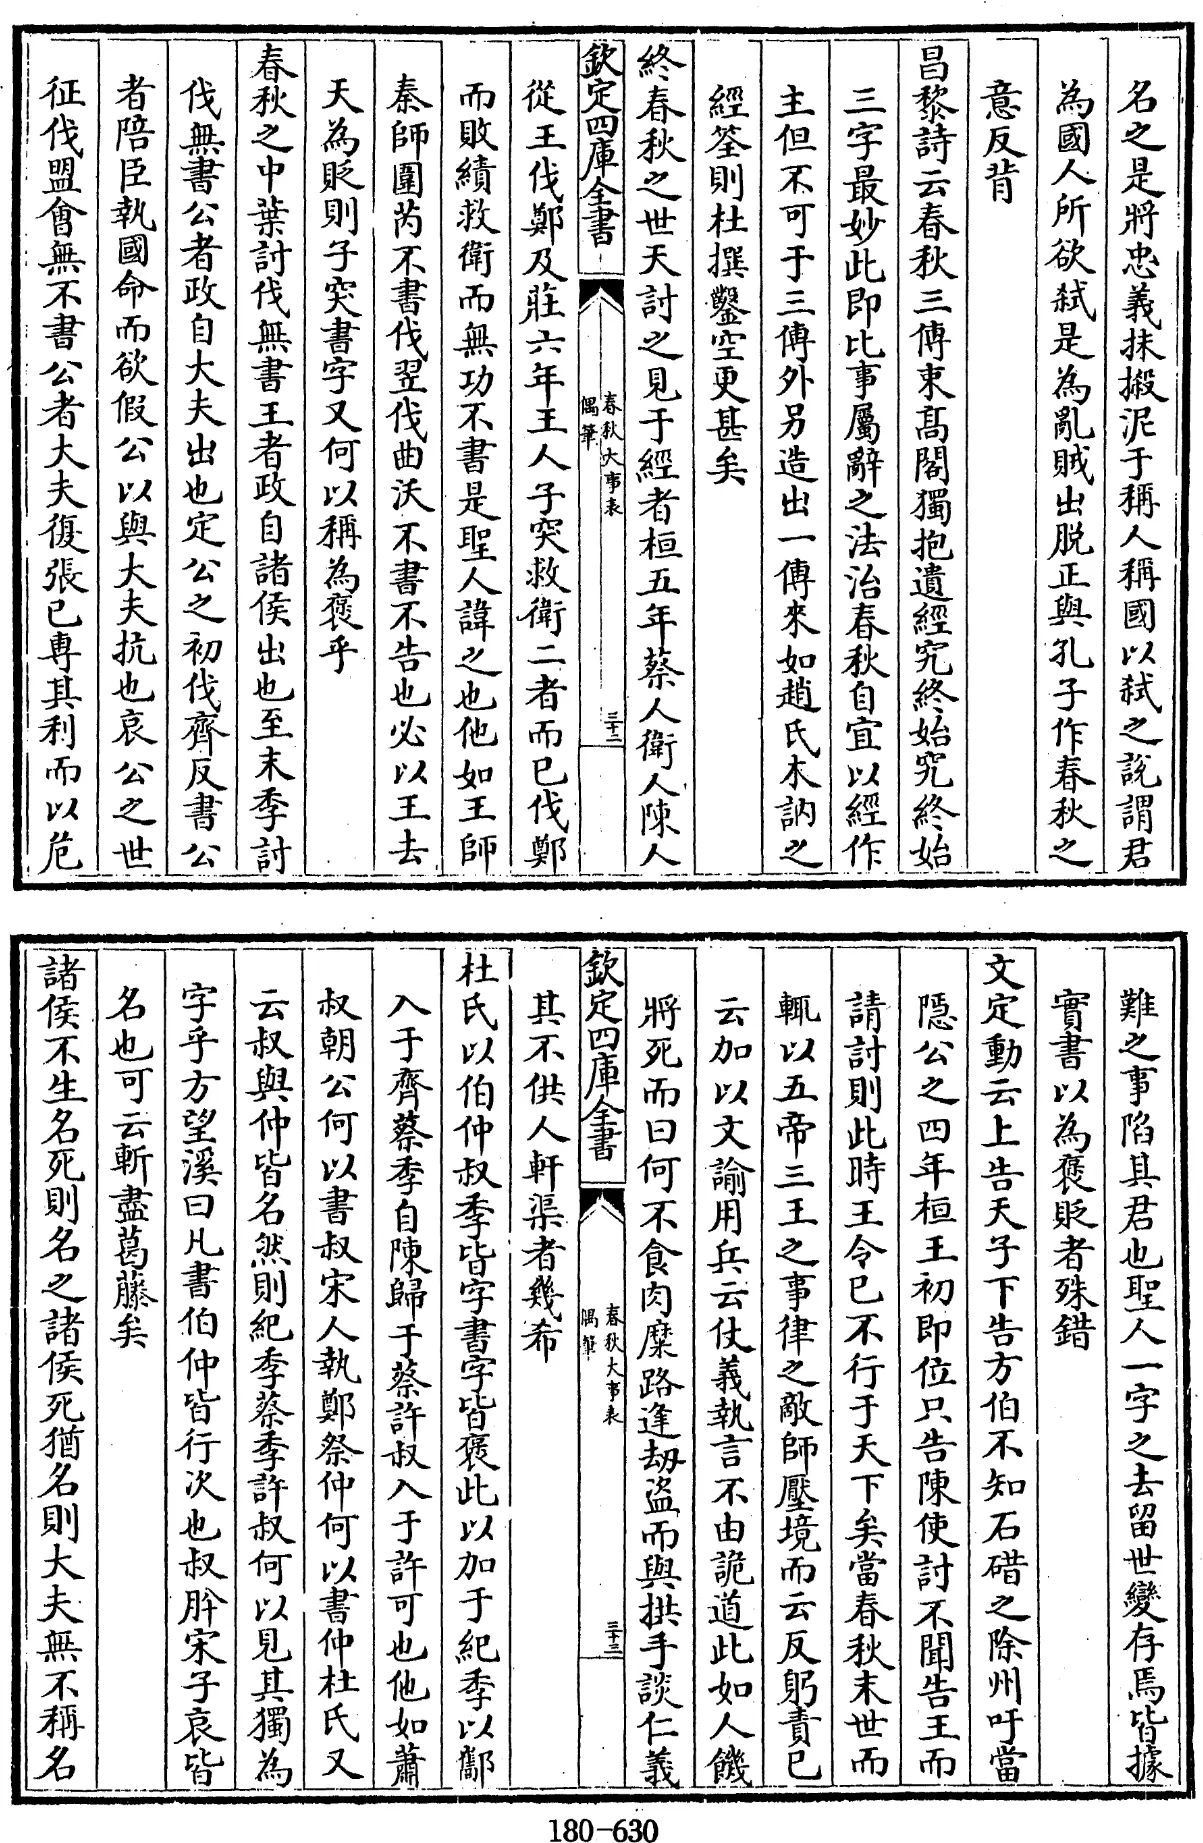 名之是將忠義抹摋泥于稱人稱國以弑之說謂君
為國人所欲弑是為亂賊出脱正與孔子作春秋之
意反背
昌黎詩云春秋三傳束髙閣獨抱遺經究終始究終始
三字最妙此即比事屬辭之法治春秋自宜以經作
主但不可于三傳外另造出一傳來如趙氏木訥之
經筌則杜撰鑿空更甚矣
終春秋之世天討之見于經者桓五年蔡人衛人陳人
欽定四庫全書
春秋大事表
偶筆
三十二
從王伐鄭及莊六年王人子突救衛二者而已伐鄭
而敗績救衛而無功不書是聖人諱之也他如王師
秦師圍芮不書伐翌伐曲沃不書不告也必以王去
天為貶則子突書字又何以稱為褒乎
春秋之中葉討伐無書王者政自諸侯出也至末季討
伐無書公者政自大夫出也定公之初伐齊反書公
者陪臣執國命而欲假公以與大夫抗也哀公之世
征伐盟會無不書公者大夫復張已專其利而以危
難之事陷其君也聖人一字之去留世變存焉皆據
實書以為褒貶者殊錯
文定動云上告天子下告方伯不知石碏之除州吁當
隱公之四年桓王初即位只告陳使討不聞告王而
請討則此時王令已不行于天下矣當春秋末世而
輒以五帝三王之事律之敵師壓境而云反躬責己
云加以文諭用兵云仗義執言不由詭道此如人饑
將死而曰何不食肉糜路逢刼盜而與拱手談仁義
欽定四庫全書
春秋大事表
偶筆
三十三
其不供人軒渠者幾希
杜氏以伯仲叔季皆字書字皆褒此以加于紀季以酅
入于齊蔡季自陳歸于蔡許叔入于許可也他如蕭
叔朝公何以書叔宋人執鄭祭仲何以書仲杜氏又
云叔與仲皆名然則紀季蔡季許叔何以見其獨為
字乎方望溪曰凡書伯仲皆行次也叔肸宋子哀皆
名也可云斬盡葛藤矣
諸侯不生名死則名之諸侯死猶名則大夫無不稱名
180-630